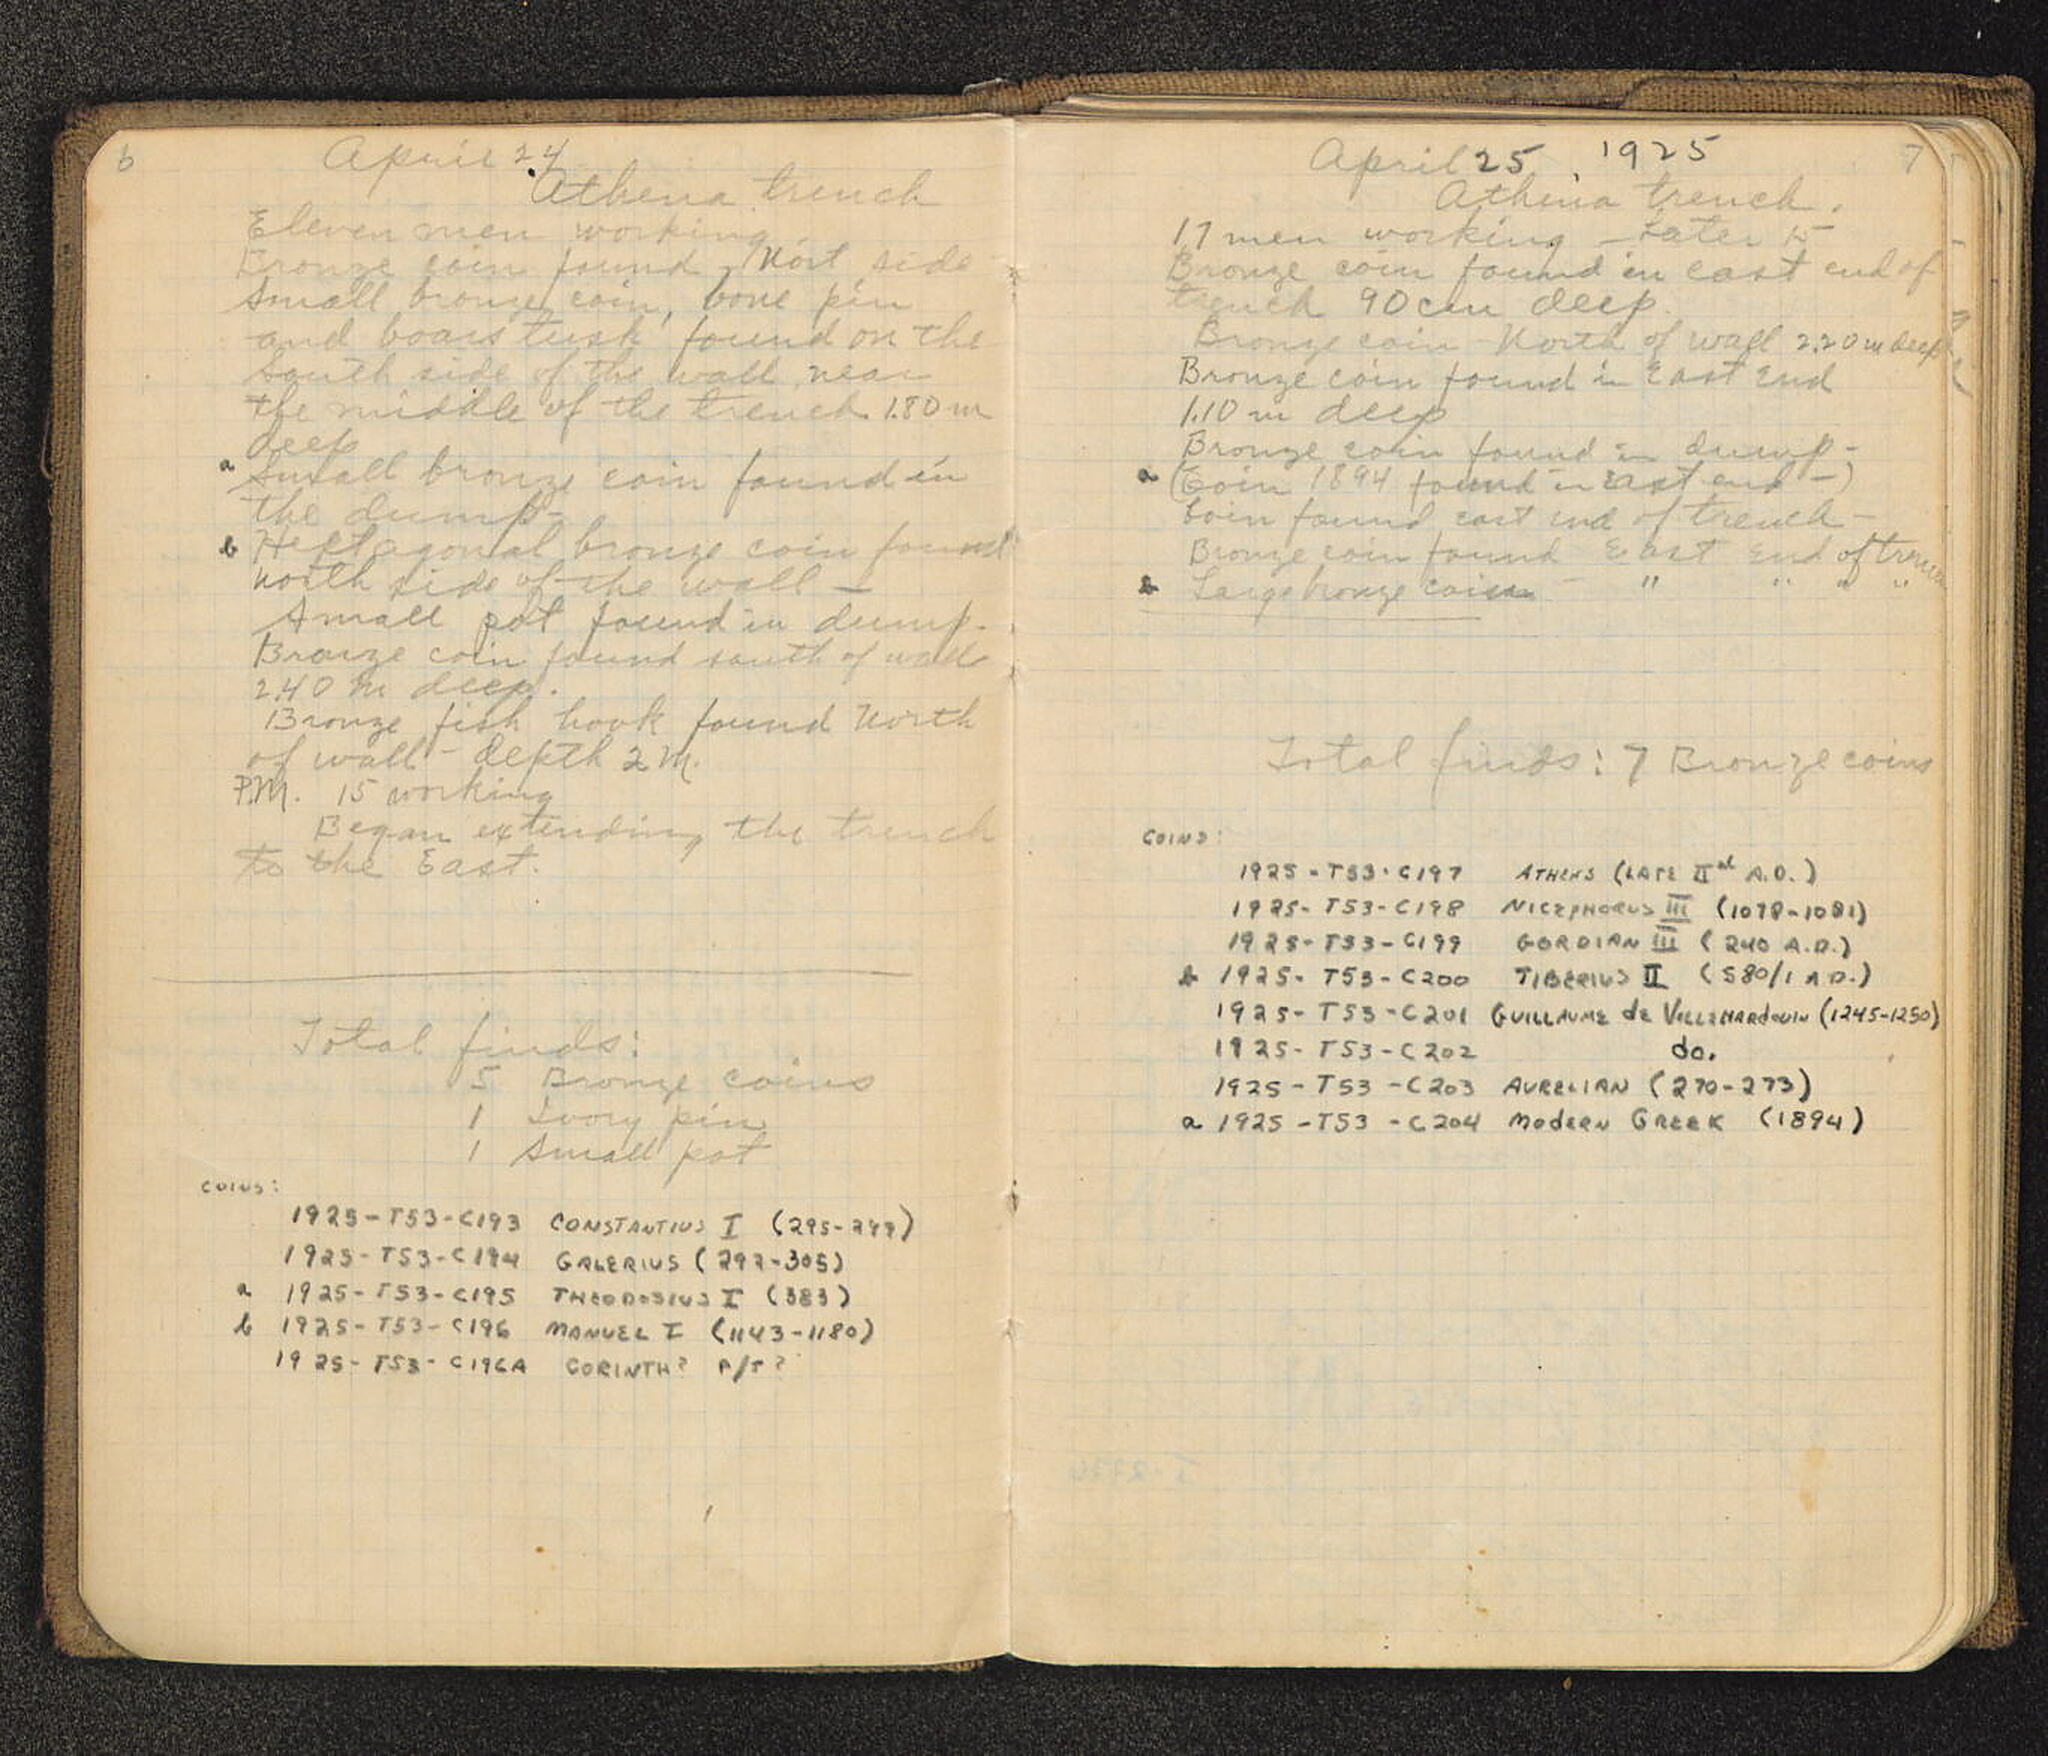 6
April 24
Athena trench
Eleven men working
Bronze coin found, Nort side
Small bronze coin, bone pin
and boars tusk found on the
South side of the wall near
the middle of the trench 1.80 m
deep
a Small bronze coin found in
the dump-
b Heptagonal bronze coin found
North side of the wall —
Small pot found in dump.
Bronze coin found south of wall
2.40 m deep.
Bronze fish hook found North
of wall - depth 2 M.
P.M. 15 working
Began extending the trench
to the East.
Total finds:
5 Bronze coins
1 Ivory pin
1 Small pot
COINS:
1925-T53-C193 CONSTANTIUS I (295-299)
1925-T53-C194 GALERIUS (292-305)
a 1925-T53-C195 THEODOSIUS I (383)
b 1925-T53-C196 MANUEL I (1143-1180)
1925-T53-C196A CORINTH? P/T?
7
April 25, 1925
Athena trench.
17 men working - Later 15
Bronze coin found in east end of
trench 90 cm deep.
Bronze coin - North of wall 2.20 m deep
Bronze coin found in East End
1.10 m deep
Bronze coin found in dump-
a (Coin 1894 found in East end -)
Coin found east end of trench -
Bronze coin found East End of trench
b Large bronze coin - " " " "
Total finds: 7 Bronze coins
COINS:
1925-T53-C197 ATHENS (LATE IInd A.D.)
1925-T53-C198 NICEPHORUS III (1078-1081)
1925-T53-C199 GORDIAN III (240 A.D.)
b 1925-T53-C200 TIBERIUS II (580/1 A.D.)
1925-T53-C201 GUILLAUME de VILLEHARDOUIN (1245-1250)
1925-T53-C202 do.
1925-T53-C203 AURELIAN (270-273)
a 1925-T53-C204 MODERN GREEK (1894)